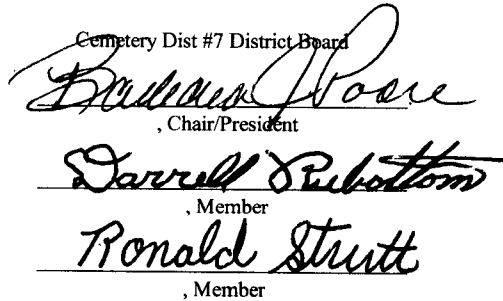 Cemetery Dist #7 District Board
Barbara J Poore
, Chair/President
Darrell Rubottom
, Member
Ronald Strutt
, Member